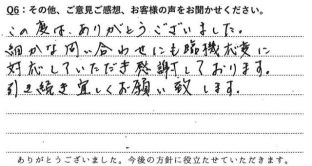 Q6：その他、ご意見ご感想、お客様の声をお聞かせください。
この度は、ありがとうございました。
細かな問い合わせにも臨機応変に
対応していただき感謝しております。
引き続き宜しくお願い致します。
ありがとうございました。今後の方針に役立たせていただきます。